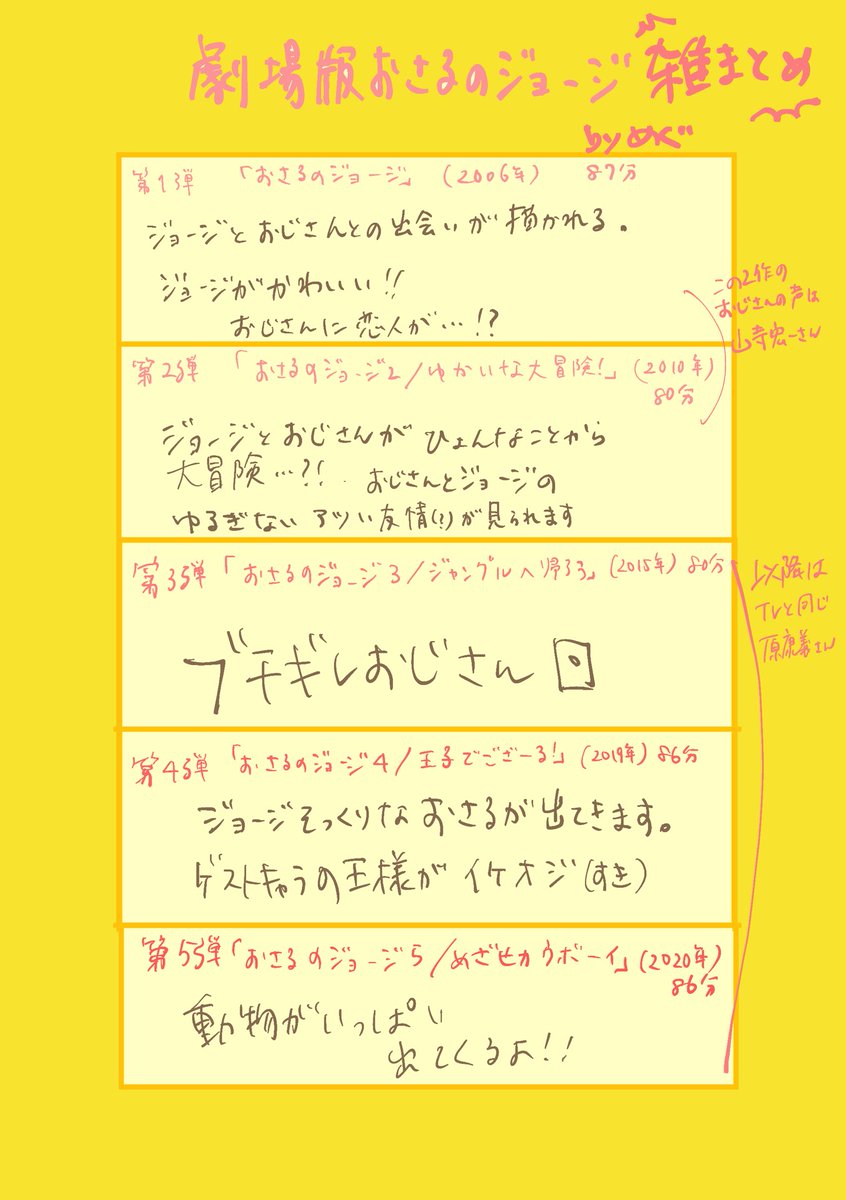 劇場版おさるのジョージ 雑まとめ
by めぐ
第1弾 「おさるのジョージ」 (2006年) 87分
ジョージとおじさんとの出会いが描かれる。
ジョージがかわいい!!
おじさんに恋人が…!?
この2作の
おじさんの声は
山寺宏一さん
第2弾 「おさるのジョージ2/ゆかいな大冒険!」(2010年)
80分
ジョージとおじさんが ひょんなことから
大冒険…?!. おじさんとジョージの
ゆるぎない アツい友情(?)が見られます
第3弾「おさるのジョージ3/ジャングルへ帰ろう」(2015年) 80分
ブチギレおじさん回
以降は
TVと同じ
原康義さん
第4弾「おさるのジョージ4/王子でござーる!」(2019年) 86分
ジョージそっくりなおさるが出てきます。
ゲストキャラの王様が イケオジ(すき)
第5弾「おさるのジョージ5/めざせカウボーイ」(2020年)
86分
動物がいっぱい
出てくるよ!!